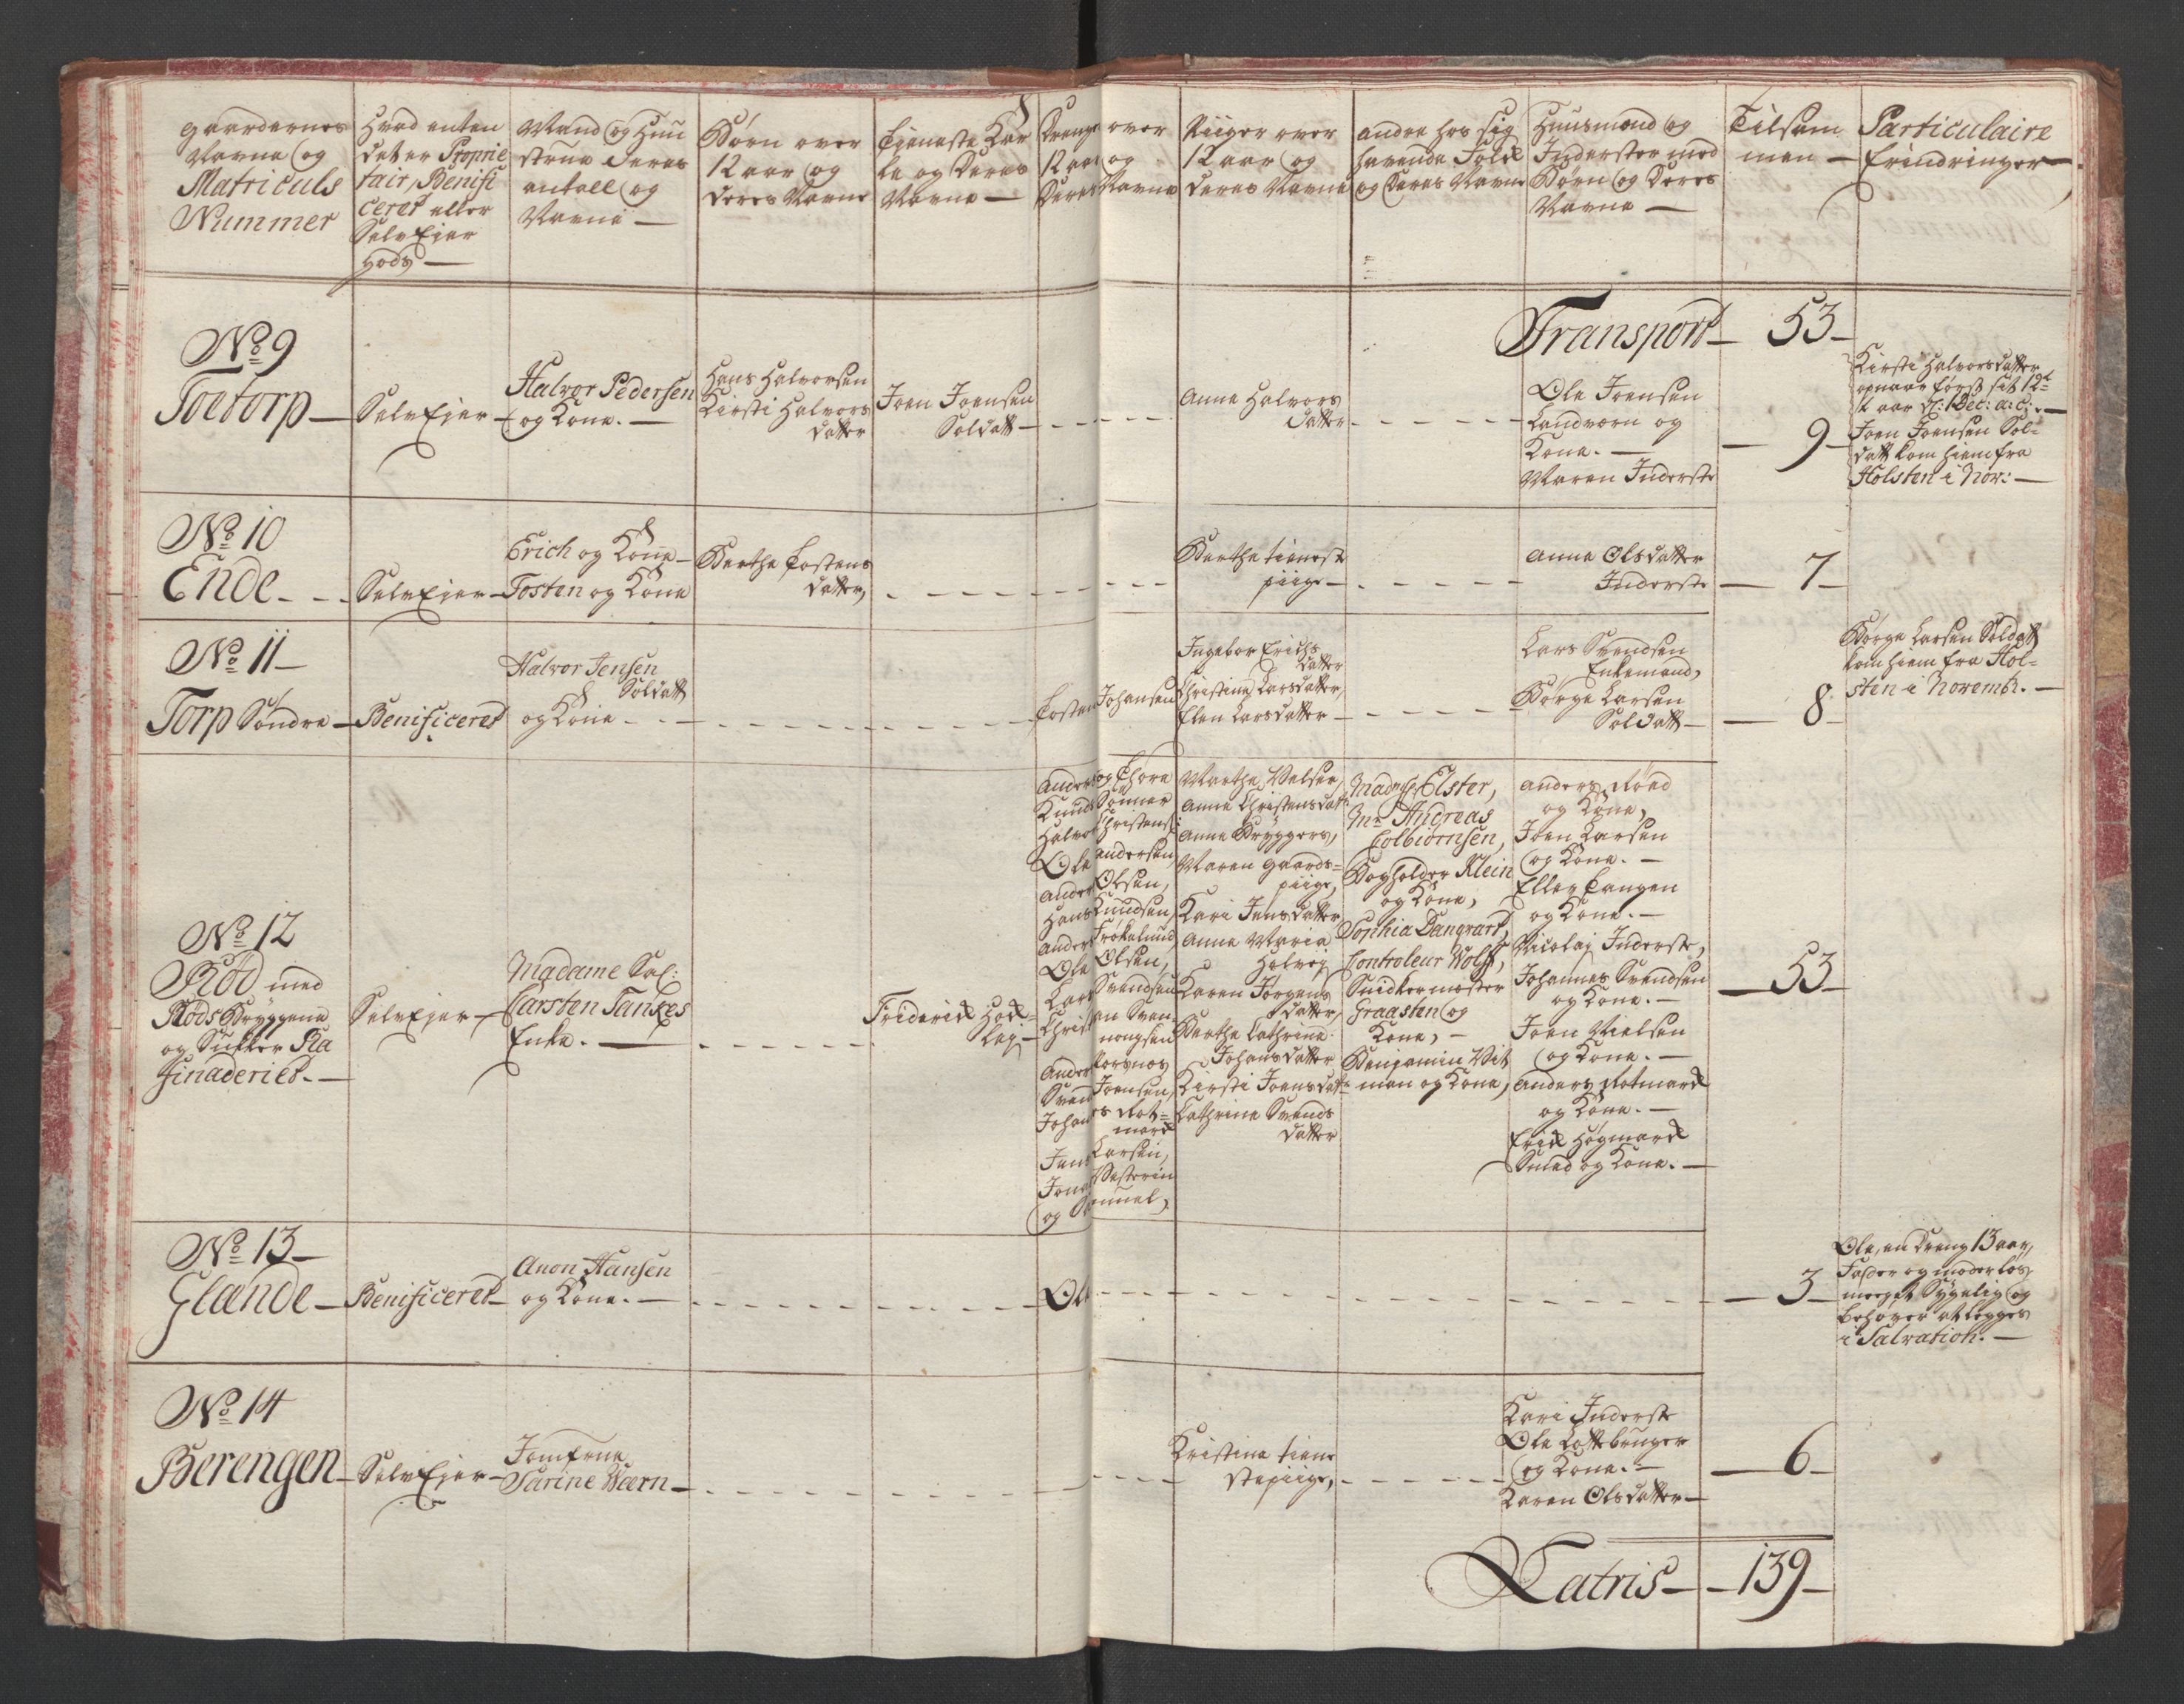 Gaardernes
Navne og
Matriculs
Nummer
Hvad enten
det er Proprie
tair, Benifi
ceret eller
SelvEjer
Gods —
Mand og Huu
strue Deres
antall og
Navne —
Børn over
12 aar og
Deres Navne
Tjeneste Kar
le og Deres
Navne —
Drenge over
12 aar og
Deres Navne
Piiger over
12 aar og
Deres Navne
andre hos sig
havende Folk
og Deres Navne
Huusmænd og
Inderster med
Børn og Deres
Navne —
Tilsam
men —
Particulaire
Erindringer —
Transport — 53 —
No 9
Toetorp —
SelvEjer —
Halvor Pedersen
og Kone. —
Hans Halvorsen
Kirsti Halvors
datter
Joen Joensen
Soldatt —
Anne Halvors
datter
Ole Joensen
Landværn og
Kone. —
Maren Inderste
— 9 —
Kirsti Halvorsdatter
opnaar først sit 12te
aar d: 1 Dec: a: c: —
Joen Joensen Sol=
datt kom hiem fra
Holsten i Nov: —
No 10
Ende - - -
SelvEjer —
Erich og Kone —
Tosten og Kone
Berthe Tostens
datter,
Berthe tieneste
piige —
Anne Olsdatter
Inderste
— 7 —
No 11 —
Torp Søndre —
Benificeret
Halvor Jensen
Soldatt
og Kone - - -
Tosten Johansen
Ingebor Erichs
datter
Christine Larsdatter,
Elen Larsdatter —
Lars Svendsen
Enkemand,
Børge Larsen
Soldatt —
— 8 —
Børge Larsen Soldatt
kom hiem fra Hol=
sten i Novemb. —
No 12
Rød med
Røds Bryggene
og Sukker Ra
finaderiet. —
SelvEjer —
Madame Sal:
Carsten Tankes
Enke. —
Friderik
Anders og Thore
Knuds Sønner
Halvor Christens:
Ole Andersen,
Anders Olsen,
Hans Knudsen,
Anders
Ole Olsen,
Lars Svendsen
Christian Sven
nongsen
Anders
Svend Joensen,
Johannes Rot=
mark
Jens Larsen,
og Samuel,
Marthe
Anne Christensdatt:
Anne Bryggers,
Maren Gaards=
piige,
Kari Jensdatter
Anne Maria
Holvog
Karen Jørgens
datter,
Berthe Cathrine
Johansdatter
Kirsti Joensdat=
Cathrine Svends
datter
Madme Elster,
Mr Andreas
Colbiørnsen,
Bogholder Klein
og Kone,
Sophia Dangvart,
Controleur Wolff,
Snidkermester
Graasten og
Kone, —
Benjamin Vit
man og Kone,
Anders Røed
og Kone,
Joen Larsen
og Kone. —
Elley Tangen
og Kone. —
Nicolaj Inderste,
Johannes Svendsen
og Kone. —
Joen Nielsen
og Kone. —
Anders Rotmark
og Kone. —
Erik Høgmark
Smed og Kone. —
— 53 —
No 13 —
Glande —
Benificeret —
Anon Hansen
og Kone. —
Ole
— 3 —
Ole, en Dreng 13 aar,
Fader og moderløs,
meeget Sygelig og
behøver at legges
i Salvation. —
No 14
Berengen —
SelvEjer —
Jomfrue
Sarine Wærn —
Kristine tiene
stepiige,
Kari Inderste
Ole
og Kone. —
Karen Olsdatter —
— 6 —
Latris — — 139 —